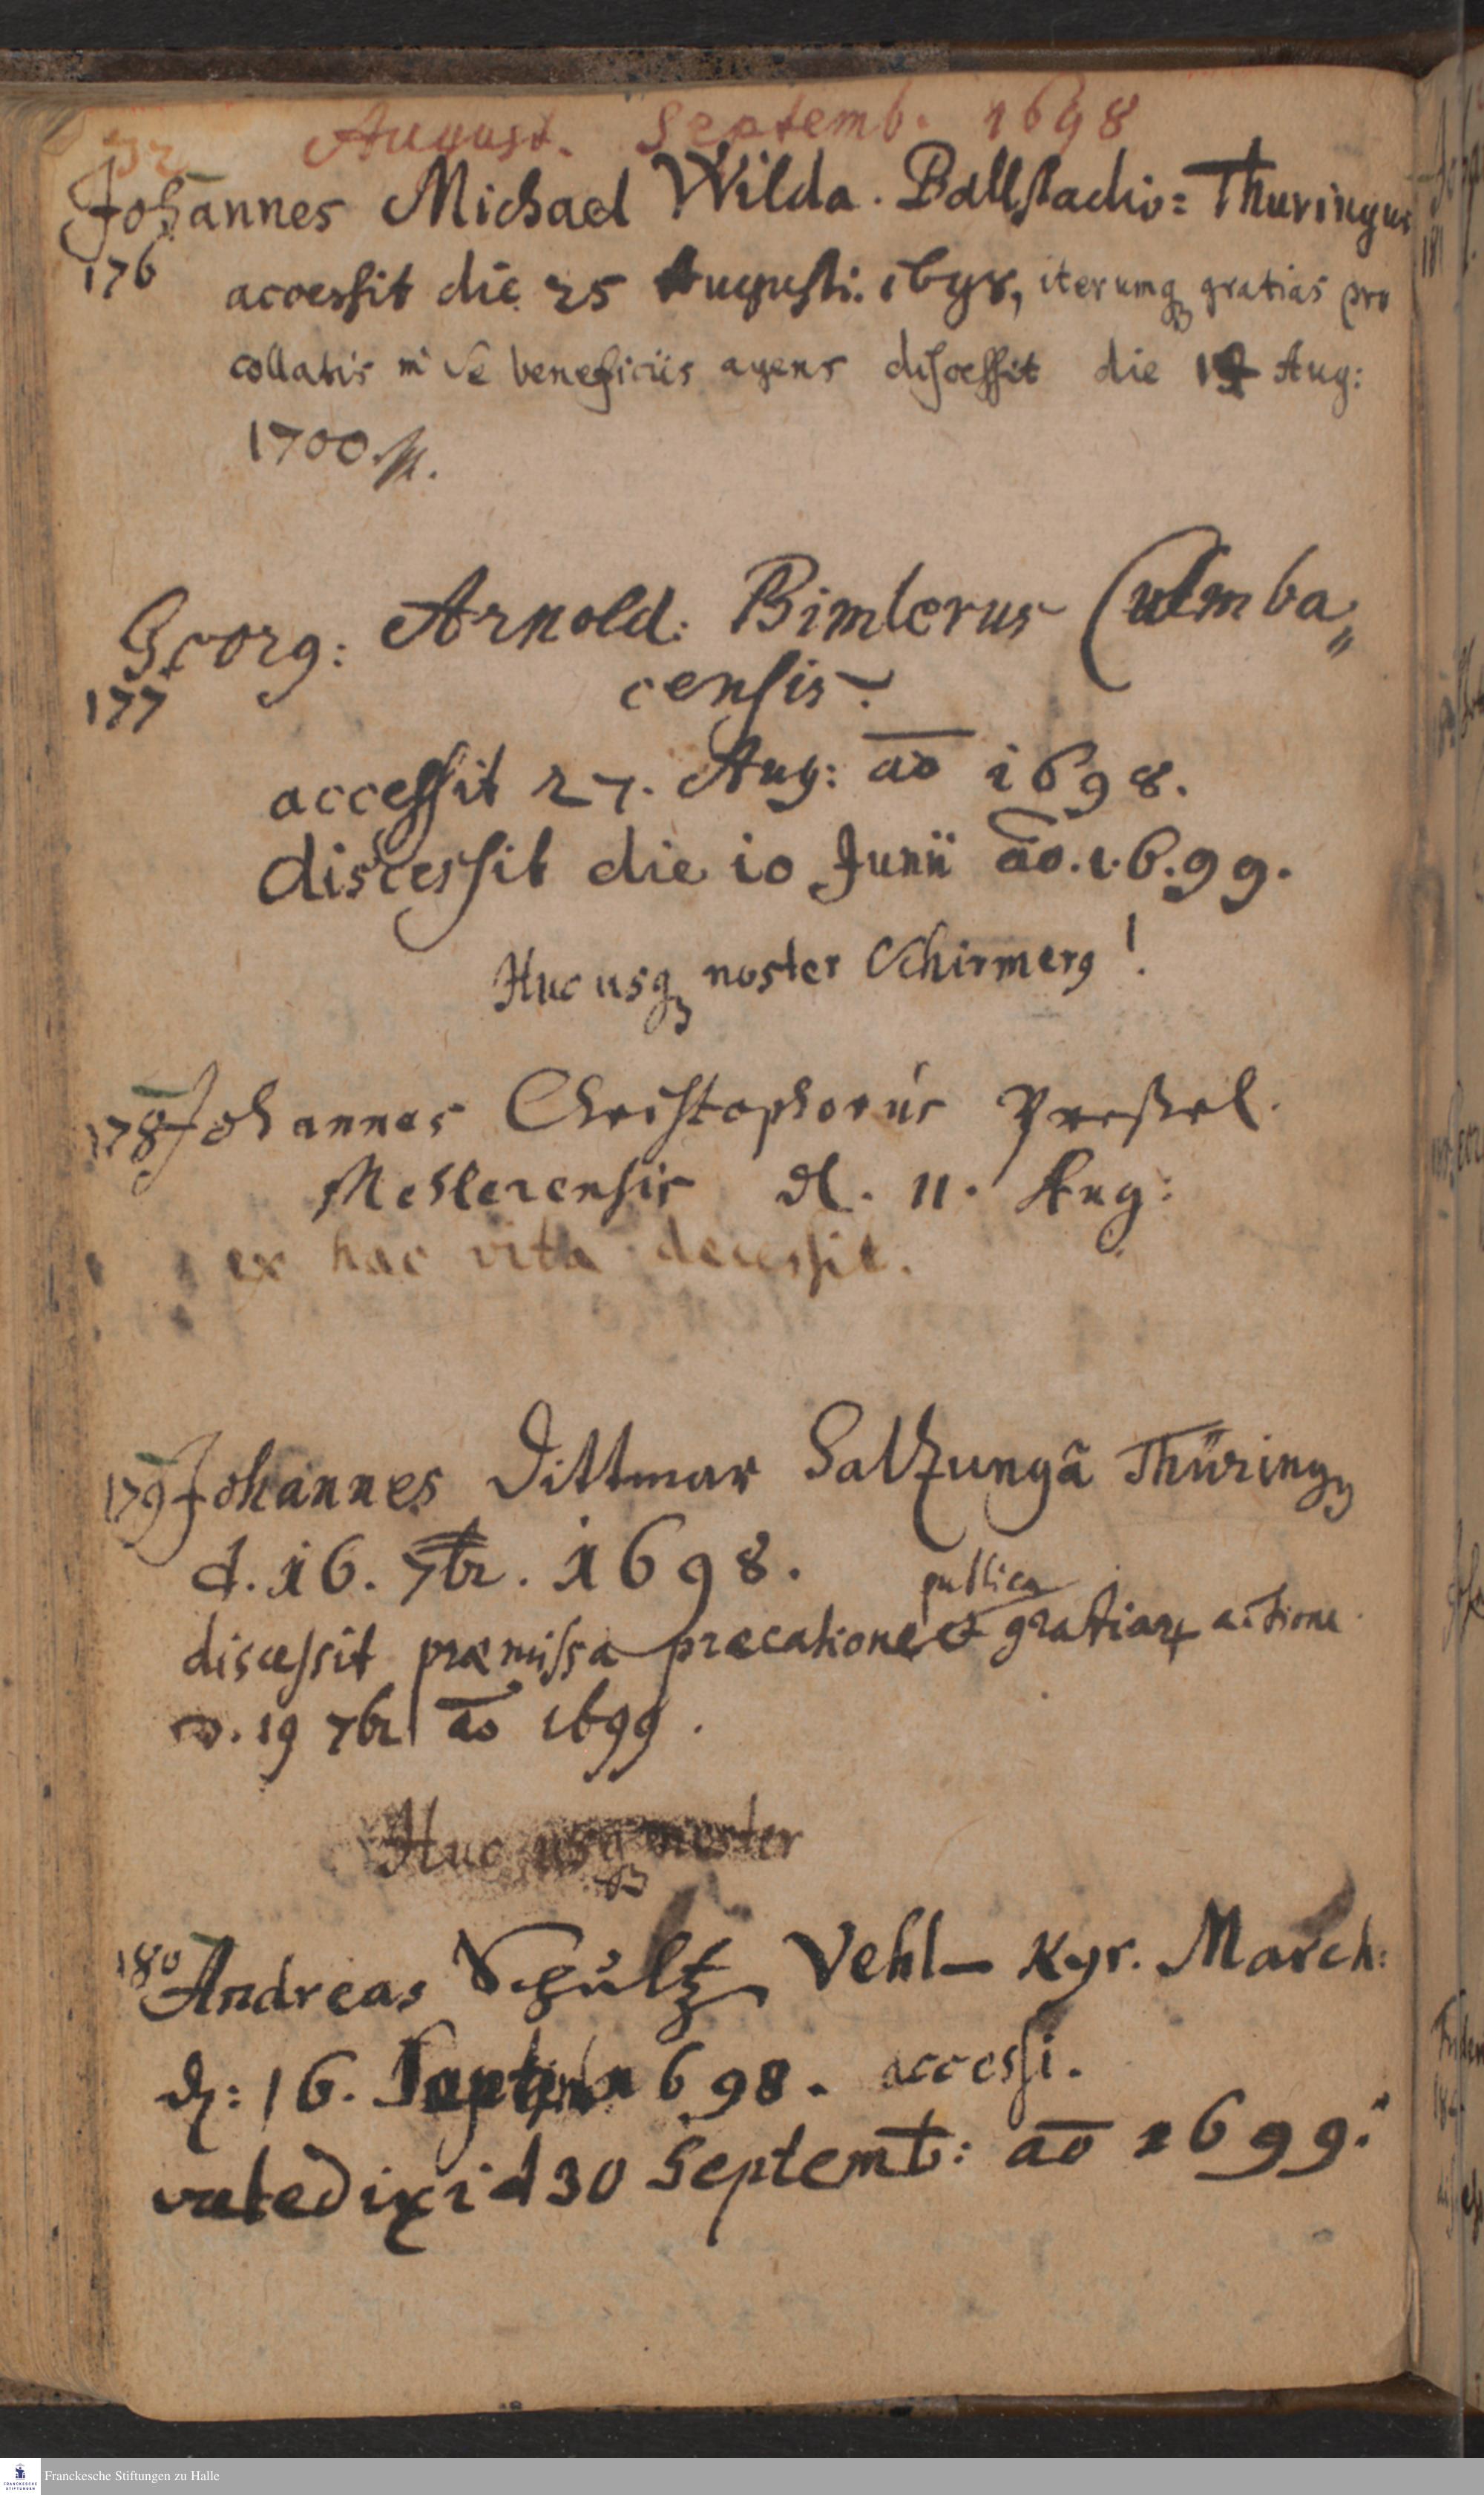 32 August. Septemb. 1698
Johannes Michael Wilda. Ballstadio=Thuringus
176 accessit die 25 Augusti. 1698, iterumq₃ gratias pro
collatis in se beneficiis agens discessit die 17 Aug:
1700.
Georg: Arnold: Bimlerus Culmba„
177 censis.
accessit 27. Aug: ao 1698.
discessit die 10 Junii ao. 1699.
Huc usq₃ noster Schirmerꝰ!
178 Johannes Christophorus
Mehlerensis d. 11. Aug:
ex hac vita decessit.
179 Johannes Dittmar Saltzungâ Thüring₉
d. 16. 7br. 1698.
publica
discessit præmissa præcatione et gratiaꝝ actione
d. 19 7br. ao 1699.
Huc usq₃ noster
180 Andreas Schultz Vehl- Kyr. March:
d: 16. Septembr 1698. accessi.
valedixi d 30 Septemb: ao 1699.
Franckesche Stiftungen zu Halle
FRANCKESCHE
STIFTUNGEN